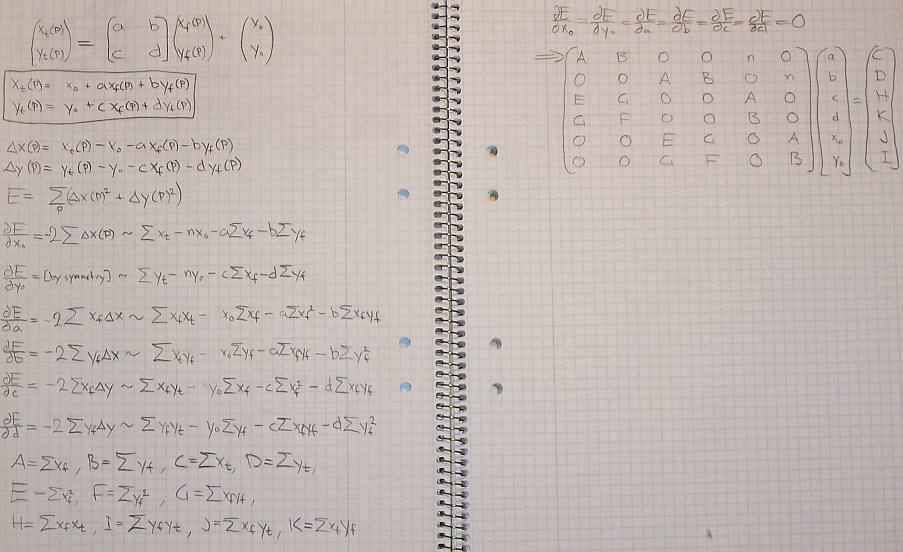 (x_t(p) y_t(p)) = [a b c d] (x_f(p) y_f(p)) + (x_0 y_0)
x_t(p) = x_0 + a x_f(p) + b y_f(p)
y_t(p) = y_0 + c x_f(p) + d y_f(p)
Δx(p) = x_t(p) - x_0 - a x_f(p) - b y_f(p)
Δy(p) = y_t(p) - y_0 - c x_f(p) - d y_f(p)
E = Σ_p (Δx(p)² + Δy(p)²)
∂E/∂x_0 = -2 Σ Δx(p) ~ Σx_t - n x_0 - aΣx_f - bΣy_f
∂E/∂y_0 = [by symmetry] ~ Σy_t - n y_0 - cΣx_f - dΣy_f
∂E/∂a = -2 Σ x_f Δx ~ Σx_f x_t - x_0 Σx_f - aΣx_f² - bΣx_f y_f
∂E/∂b = -2 Σ y_f Δx ~ Σx_t y_f - x_0 Σy_f - aΣx_f y_f - bΣy_f²
∂E/∂c = -2 Σ x_f Δy ~ Σx_f y_t - y_0 Σx_f - cΣx_f² - dΣx_f y_f
∂E/∂d = -2 Σ y_f Δy ~ Σy_f y_t - y_0 Σy_f - cΣx_f y_f - dΣy_f²
A = Σx_f, B = Σy_f, C = Σx_t, D = Σy_t,
E = Σx_f², F = Σy_f², G = Σx_f y_f,
H = Σx_f x_t, I = Σy_f y_t, J = Σx_f y_t, K = Σx_t y_f
∂E/∂x_0 = ∂E/∂y_0 = ∂E/∂a = ∂E/∂b = ∂E/∂c = ∂E/∂d = 0
⇒ A B 0 0 n 0 a C
0 0 A B 0 n b D
E G 0 0 A 0 c = H
G F 0 0 B 0 d K
0 0 E G 0 A x_0 J
0 0 G F 0 B y_0 I